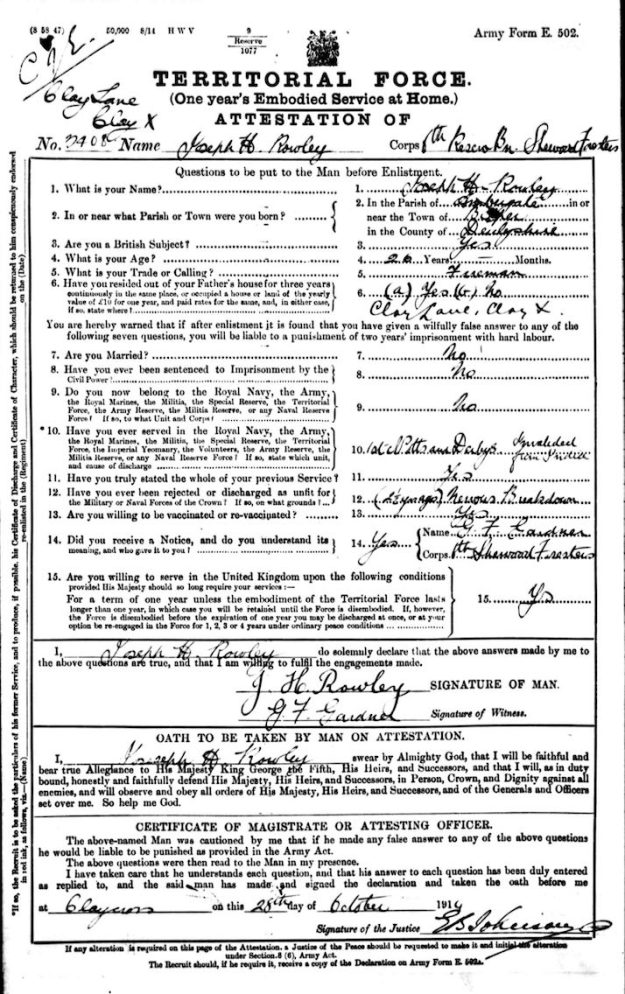 (8 58 47) 50,000 8/14 H W V
9
Reserve
1077
Army Form E. 502.
Clay Lane
Clay X
TERRITORIAL FORCE.
(One year's Embodied Service at Home.)
ATTESTATION OF
No. Name Joseph H. Rowley Corps 6th Reserve Bn Sherwood Foresters
Questions to be put to the Man before Enlistment.
1. What is your Name? 1. Joseph H. Rowley
2. In or near what Parish or Town were you born? 2. In the Parish of Ambergate in or
near the Town of Belper
in the County of Derbyshire
3. Are you a British Subject? 3. Yes
4. What is your Age? 4. 26 Years — Months.
5. What is your Trade or Calling? 5. Fireman
6. Have you resided out of your Father's house for three years
continuously in the same place, or occupied a house or land of the yearly
value of £10 for one year, and paid rates for the same, and, in either case,
if so, state where? 6. (a) Yes (b) No
Clay Lane, Clay X.
You are hereby warned that if after enlistment it is found that you have given a wilfully false answer to any of the
following seven questions, you will be liable to a punishment of two years' imprisonment with hard labour.
7. Are you Married? 7. No
8. Have you ever been sentenced to Imprisonment by the
Civil Power? 8. No
9. Do you now belong to the Royal Navy, the Army,
the Royal Marines, the Militia, the Special Reserve, the Territorial
Force, the Army Reserve, the Militia Reserve, or any Naval Reserve
Force? If so, to what Unit and Corps? 9. No
*10. Have you ever served in the Royal Navy, the Army,
the Royal Marines, the Militia, the Special Reserve, the Territorial
Force, the Imperial Yeomanry, the Volunteers, the Army Reserve, the
Militia Reserve, or any Naval Reserve Force? If so, state which unit,
and cause of discharge 10. 1st Notts and Derbys Invalided
from
11. Have you truly stated the whole of your previous Service? 11. Yes
12. Have you ever been rejected or discharged as unfit for
the Military or Naval Forces of the Crown? If so, on what grounds? 12. Nervous Breakdown
13. Are you willing to be vaccinated or re-vaccinated? 13. Yes
14. Did you receive a Notice, and do you understand its
meaning, and who gave it to you? 14. Yes Name G F Gardner
Corps 6th Sherwood Foresters
15. Are you willing to serve in the United Kingdom upon the following conditions
provided His Majesty should so long require your services:—
For a term of one year unless the embodiment of the Territorial Force lasts
longer than one year, in which case you will be retained until the Force is disembodied. If, however,
the Force is disembodied before the expiration of one year you may be discharged at once, or at your
option be re-engaged in the Force for 1, 2, 3 or 4 years under ordinary peace conditions 15. Yes
I, Joseph H. Rowley do solemnly declare that the above answers made by me to
the above questions are true, and that I am willing to fulfil the engagements made.
J. H. Rowley SIGNATURE OF MAN.
G F Gardner Signature of Witness.
OATH TO BE TAKEN BY MAN ON ATTESTATION.
I, Joseph H Rowley swear by Almighty God, that I will be faithful and
bear true Allegiance to His Majesty King George the Fifth, His Heirs, and Successors, and that I will, as in duty
bound, honestly and faithfully defend His Majesty, His Heirs, and Successors, in Person, Crown, and Dignity against all
enemies, and will observe and obey all orders of His Majesty, His Heirs, and Successors, and of the Generals and Officers
set over me. So help me God.
CERTIFICATE OF MAGISTRATE OR ATTESTING OFFICER.
The above-named Man was cautioned by me that if he made any false answer to any of the above questions
he would be liable to be punished as provided in the Army Act.
The above questions were then read to the Man in my presence.
I have taken care that he understands each question, and that his answer to each question has been duly entered
as replied to, and the said man has made and signed the declaration and taken the oath before me
at Claycross on this 28th day of October 1914
Signature of the Justice
If any alteration is required on this page of the Attestation, a Justice of the Peace should be requested to make it and initial the alteration
under Section 8 (6), Army Act.
The Recruit should, if he require it, receive a copy of the Declaration on Army Form E. 502a.
*If so, the Recruit is to be asked the particulars of his former Service, and to produce, if possible, his Certificate of Discharge and Certificate of Character, which should be returned to him conspicuously endorsed
in red ink, as follows, viz.—(Name) re-enlisted in the (Regiment) on the (Date).